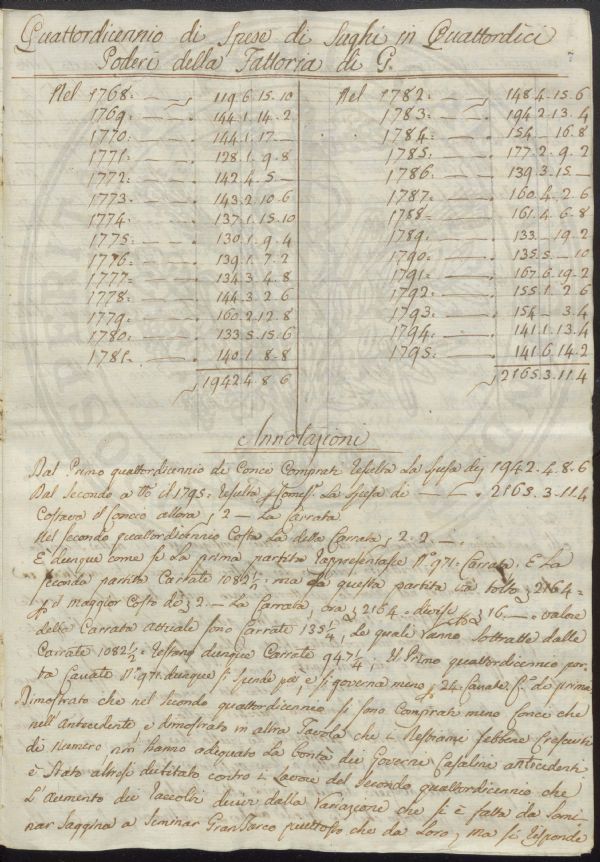 Quattordicennio di Spese di Sughi in Quattordici
Poderi della Fattoria di G.
Nel 1768 = 119. 6. 15. 10
1769 = 144. 1. 14. 2
1770 = 144. 1. 17 —
1771 = 128. 1. 9. 8
1772 = 142. 4. 5 —
1773 = 143. 2. 10. 6
1774 = 137. 1. 15. 10
1775 = 130. 1. 9. 4
1776 = 139. 1. 7. 2
1777 = 134. 3. 4. 8
1778 = 144. 3. 2. 6
1779 = 160. 2. 12. 8
1780 = 133. 5. 15. 6
1781 = 140. 1. 8. 8
1942. 4. 8. 6
Nel 1782 = 148. 4. 15. 6
1783 = 194. 2. 13. 4
1784 = 154 — 16. 8
1785 = 177. 2. 9. 2
1786 = 139. 3. 15 —
1787 = 160. 4. 2. 6
1788 = 161. 4. 6. 8
1789 = 133 — 19. 2
1790 = 135. 5 — 10
1791 = 167. 6. 19. 2
1792 = 155. 1. 2. 6
1793 = 154 — 3. 4
1794 = 141. 1. 13. 4
1795 = 141. 6. 14. 2
2165. 3. 11. 4
Annotazioni
Dal Primo quattordicennio di Conci Comprati resulta La Spesa di 1942. 4. 8. 6
Dal Secondo a tto il 1795. resulta La Spesa di — 2165. 3. 11. 4
Costava il Concio allora 2 — La Carrata
Nel secondo quattordicennio Costa La detta Carrata 2. 2 —
È dunque come se La prima partita rappresentasse N.º 971. Carrate. E La
Seconda partita Carrate 1082½: ma da questa partita va tolto 2164 =
il maggior Costo di 2. — La Carrata, ora 2164. divise 16. — valore
della Carrata attuale sono Carrate 135¼, Le quali vanno sottratte dalle
Carrate 1082½ = restano dunque Carrate 947¼, Il Primo quattordicennio por-
ta Carrate N.º 971. dunque si spende più, e si governa meno 24. Carrate di prima
Dimostrato che nel secondo quattordicennio si sono Comprati meno Conci che
nell' Antecedente, è dimostrato in altra Tavola che Bestiami sebbene Cresciuti
di numero non hanno adequato La bontà dei Governi Casalini antecedenti
è Stato altresì dubitato contro Lavoro del Secondo quattordicennio che
L'aumento dei raccolti derivi dalla Variazione che si è fatta da Semi-
nar Saggina a Seminar Gran Turco piuttosto che da Loro, ma si risponde